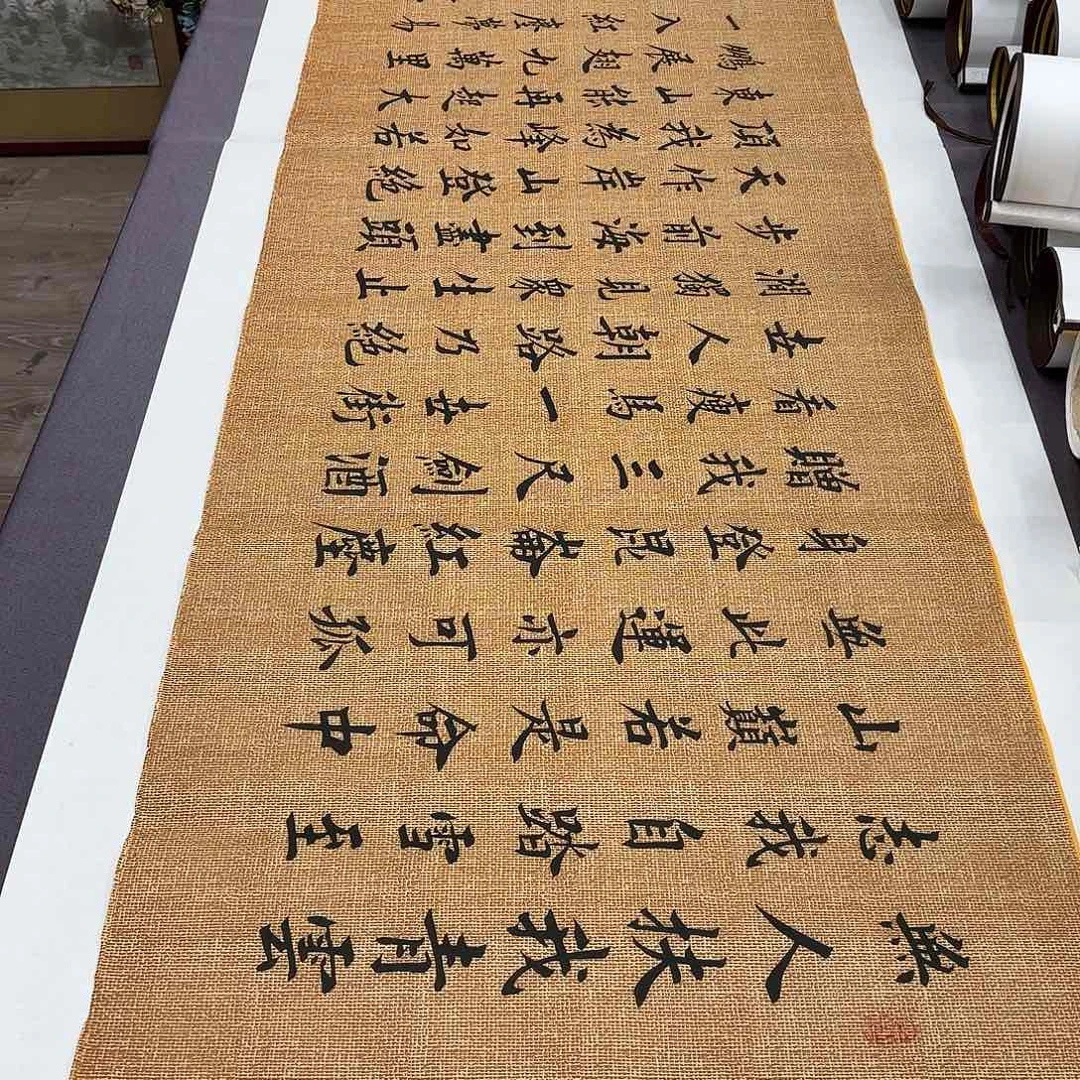 無人扶我青雲
志我自踏雪至
山巔若是命中
無此運亦可孤
身登崐崙紅塵
贈我三尺劍酒
肴瘦馬一世街
世人朝路乃絕
澗獨見衆生止
步前海到盡頭
天作岸山登絕
頂我為峰如若
東山能再起大
鵬展翅九萬里
一入紅塵萬易